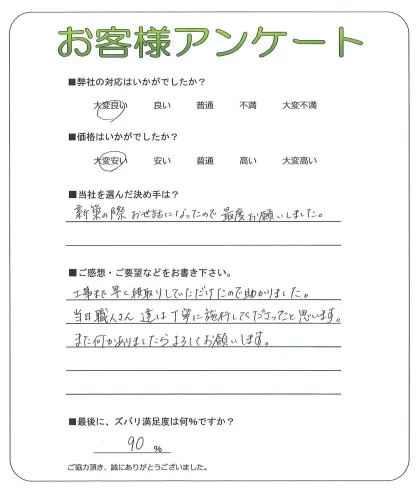 お客様アンケート
■弊社の対応はいかがでしたか？
大変良い 良い 普通 不満 大変不満
■価格はいかがでしたか？
大変安い 安い 普通 高い 大変高い
■当社を選んだ決め手は？
新築の際お世話になったので最度お願いしました。
■ご感想・ご要望などをお書き下さい。
工事まで早く段取りしていただけたので助かりました。
当日職人さん達は丁寧に施行してくださったと思います。
また何かありましたらよろしくお願いします。
■最後に、ズバリ満足度は何％ですか？
90 %
ご協力頂き、誠にありがとうございました。